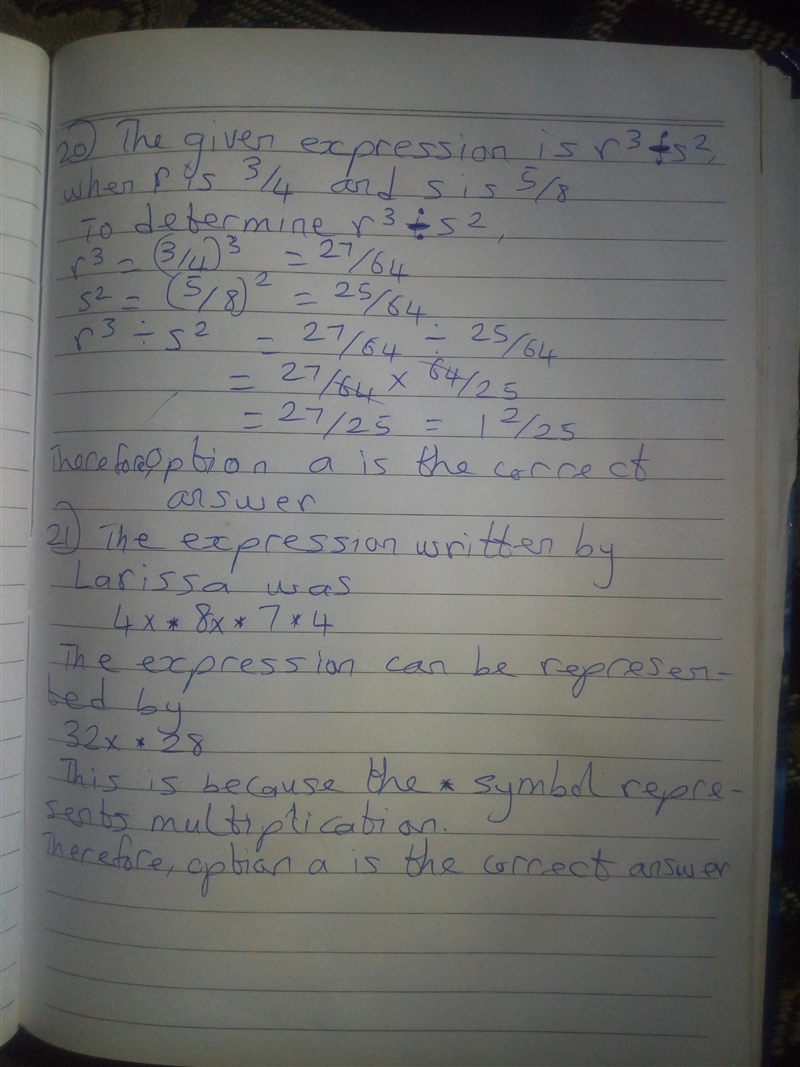 20) The given expression is r³÷s²,
when r is 3/4 and s is 5/8
To determine r³÷s²,
r³ = (3/4)³ = 27/64
s² = (5/8)² = 25/64
r³ ÷ s² = 27/64 ÷ 25/64
= 27/64 × 64/25
= 27/25 = 1 2/25
Therefore, Option a is the correct
answer
21) The expression written by
Larissa was
4x * 8x * 7 * 4
The expression can be represen-
ted by
32x * 28
This is because the * symbol repre-
sents multiplication.
Therefore, option a is the correct answer